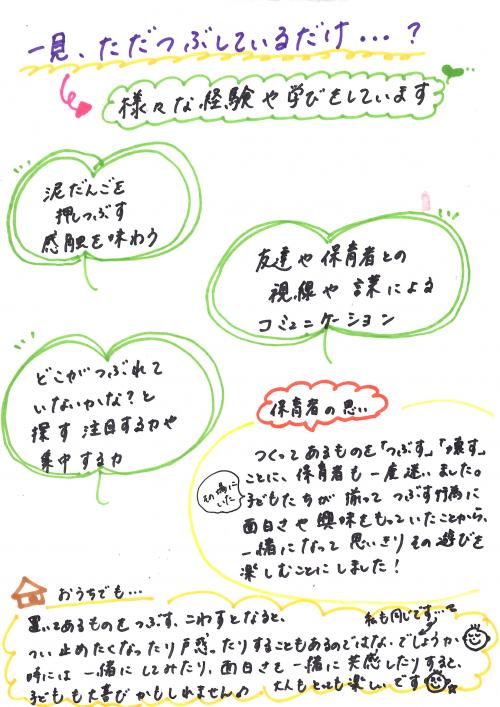 一見、ただつぶしているだけ...?
様々な経験や学びをしています
泥だんごを
押しつぶす
感触を味わう
友達や保育者との
視線や言葉による
コミュニケーション
どこがつぶれて
いないかな?と
探す注目する力や
集中する力
保育者の思い
つくってあるものを「つぶす」「壊す」
ことに、保育者も一度迷いました。
その場に
いた
子どもたちが揃ってつぶす行為に
面白さや興味をもっていたことから、
一緒になって思いきりその遊びを
楽しむことにしました!
おうちでも...
置いてあるものをつぶす、こわすとなると、
私も同じです...て
つい止めたくなったり戸惑ったりすることもあるのではないでしょうか
時には一緒にしてみたり、面白さを一緒に共感したりすると、
子どもも大喜びかもしれません♪ 大人もとっても楽しいです